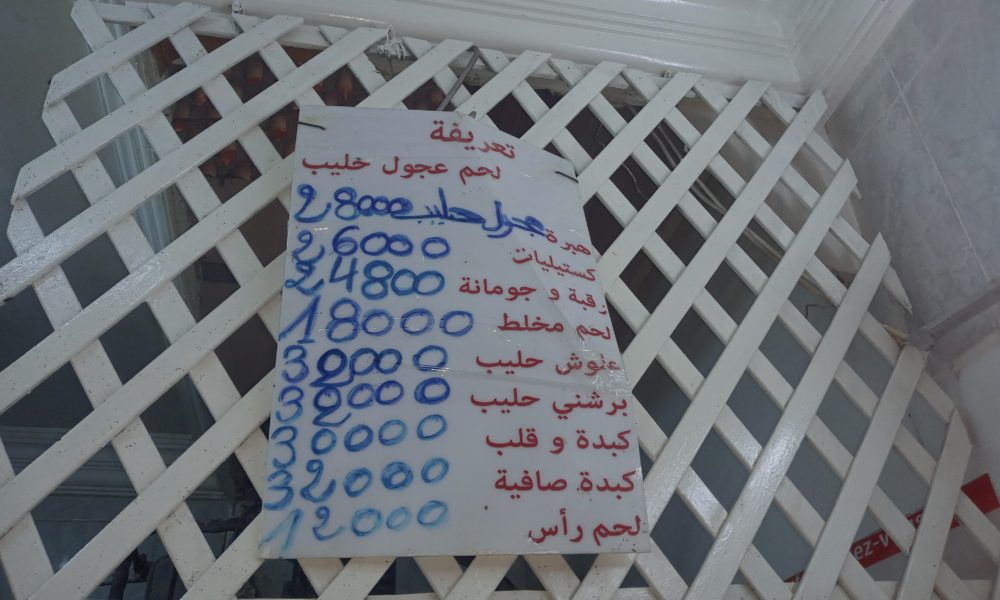 تعريفة
لحم عجول خليب
هبرة عجول حليب 28000
كستيليات 26000
رقبة و جومانة 24800
لحم مخلط 18000
علوش حليب 30000
برشني حليب 32000
كبدة و قلب 30000
كبدة صافية 32000
لحم رأس 12000
ez-v